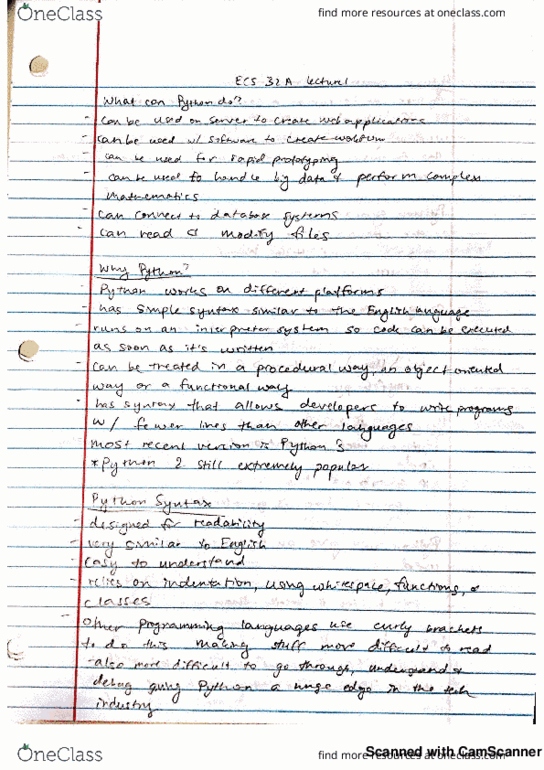 OneClass
find more resources at oneclass.com
ECS 32A lecture 1
What can Python do?
- can be used on server to create web applications
- can be used w/ software to create workflow
- can be used for rapid prototyping
- can be used to handle big data & perform complex
mathematics
- can connect to database systems
- can read & modify files
Why Python?
- Python works on different platforms
- has simple syntax similar to the English language
- runs on an interpreter system so code can be executed
as soon as it's written
- can be treated in a procedural way, an object oriented
way or a functional way
- has syntax that allows developers to write programs
w/ fewer lines than other languages
- most recent version is Python 3
*Python 2 still extremely popular
Python Syntax
- designed for readability
- very similar to English
- easy to understand
- relies on indentation, using whitespace, functions, &
classes
- other programming languages use curly brackets
to do this making stuff more difficult to read
-also more difficult to go through, understand &
debug giving Python a huge edge in the tech
industry
Scanned with CamScanner
OneClass
find more resources at oneclass.com